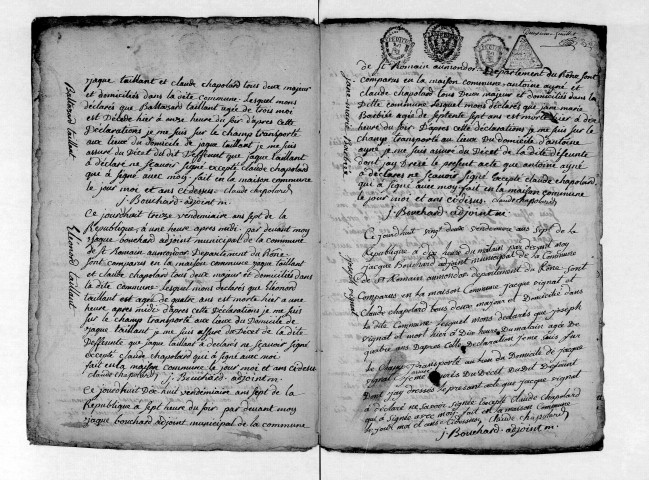 Jaque taillant et claude chapolard tous deux majeur
et domiciliés dans la dite Commune. lesquel mons
déclarés que Baltazard taillant agée de trois moi
est Décédé hier à onze heure du soir d'apres cette
Déclarations je me suis sur le champ transporté
aux lieux du domicile de jaque taillant je me suis
assuré du Décet du dit Deffunt que jaque taillant
à déclaré ne sçavoir signé. excepté claude chapolard
qui à signé avec moy. fait en la maison commune
le jour moi et ans et dessus. claude chapolard
j. Bouchard adjoint m.
Baltazard taillant
Ce jourdhuit treize vendemiaire ans sept de la
République, a une heure après midi. par devant moy
Jaque bouchard adjoint municipal de la commune
de st Romain aumondor Departement du Rône.
sont comparus en la maison commune jaque taillant
et claude chapolard tous deux majeur et domiciliés dans
la dite commune. lesquel mons déclarés que Elienord
taillant est agée de quatre ans est morte hier a une
heure après midi. d'après cette Déclarations je me suis
sur le champ transporté aux lieux du Domicile de
jaque taillant je me suis assuré du Décet de la dite
Deffunte que jaque taillant à déclarés ne sçavoir signé
excepté claude chapolard qui à signé avec moi
fait en la maison commune le jour moi et ans et dessus
claude chapolard j. Bouchard adjoint m.
Elienord taillant
Ce jourdhuit Dix huit vendémiaire ans sept de la
République a sept heure du soir par devant moy
jaque bouchard adjoint municipal de la commune
de st Romain aumondor. Departement du Rône. sont
comparus en la maison commune antoine ayné et
claude chapolard tous Deux majeur et domiciliés dans la
Ditte commune lesquel mons déclarés que jane marie
Barbiée agée de septente sept ans est morte hier à dix
heure du soir. D'après cette déclarations je me suis sur le
champ transporté au lieux Du domicile d'antoine
ayné je me suis assuré du Décet de la dite défunte
dont jay Dressé le present acte que antoine ayné
a déclarés ne sçavoir signé excepté claude chapolard,
qui à signé avec moy. fait en la maison commune
le jour moi et ans et dessus. claude chapolard
j. Bouchard adjoint m.
jane marie Barbiée
Ce jourdhuit vingt deux vendemiaire ans sept de la
République a dix heure du matain par devant moy
jacque Bouchard adjoint municipal de la Commune
de st Romain aumondor departement du Rône. Sont
Comparus en la maison Commune jacque vignat et
Claude chapolard tous deux majeur et Domicilié dans
la dite Commune lesquel mons déclarés que joseph
vignat est mort hier à Dix heure Du matain agé De
quatre ans D'après Cette Déclaration jeme suis sur
le Champ Transporté au lieu du Domicile de jacque
vignat jeme suis assuré Du Décet Du Dit Défunt
Dont jay dressés le present acte que jacque vignat
a déclaré ne savoir signée Excepté Claude chapolard
qui a signée avec moy fait en la maison Commune
le jour moi et ans et dessus, Claude chapolard
j. Bouchard adjoint m.
joseph vignat